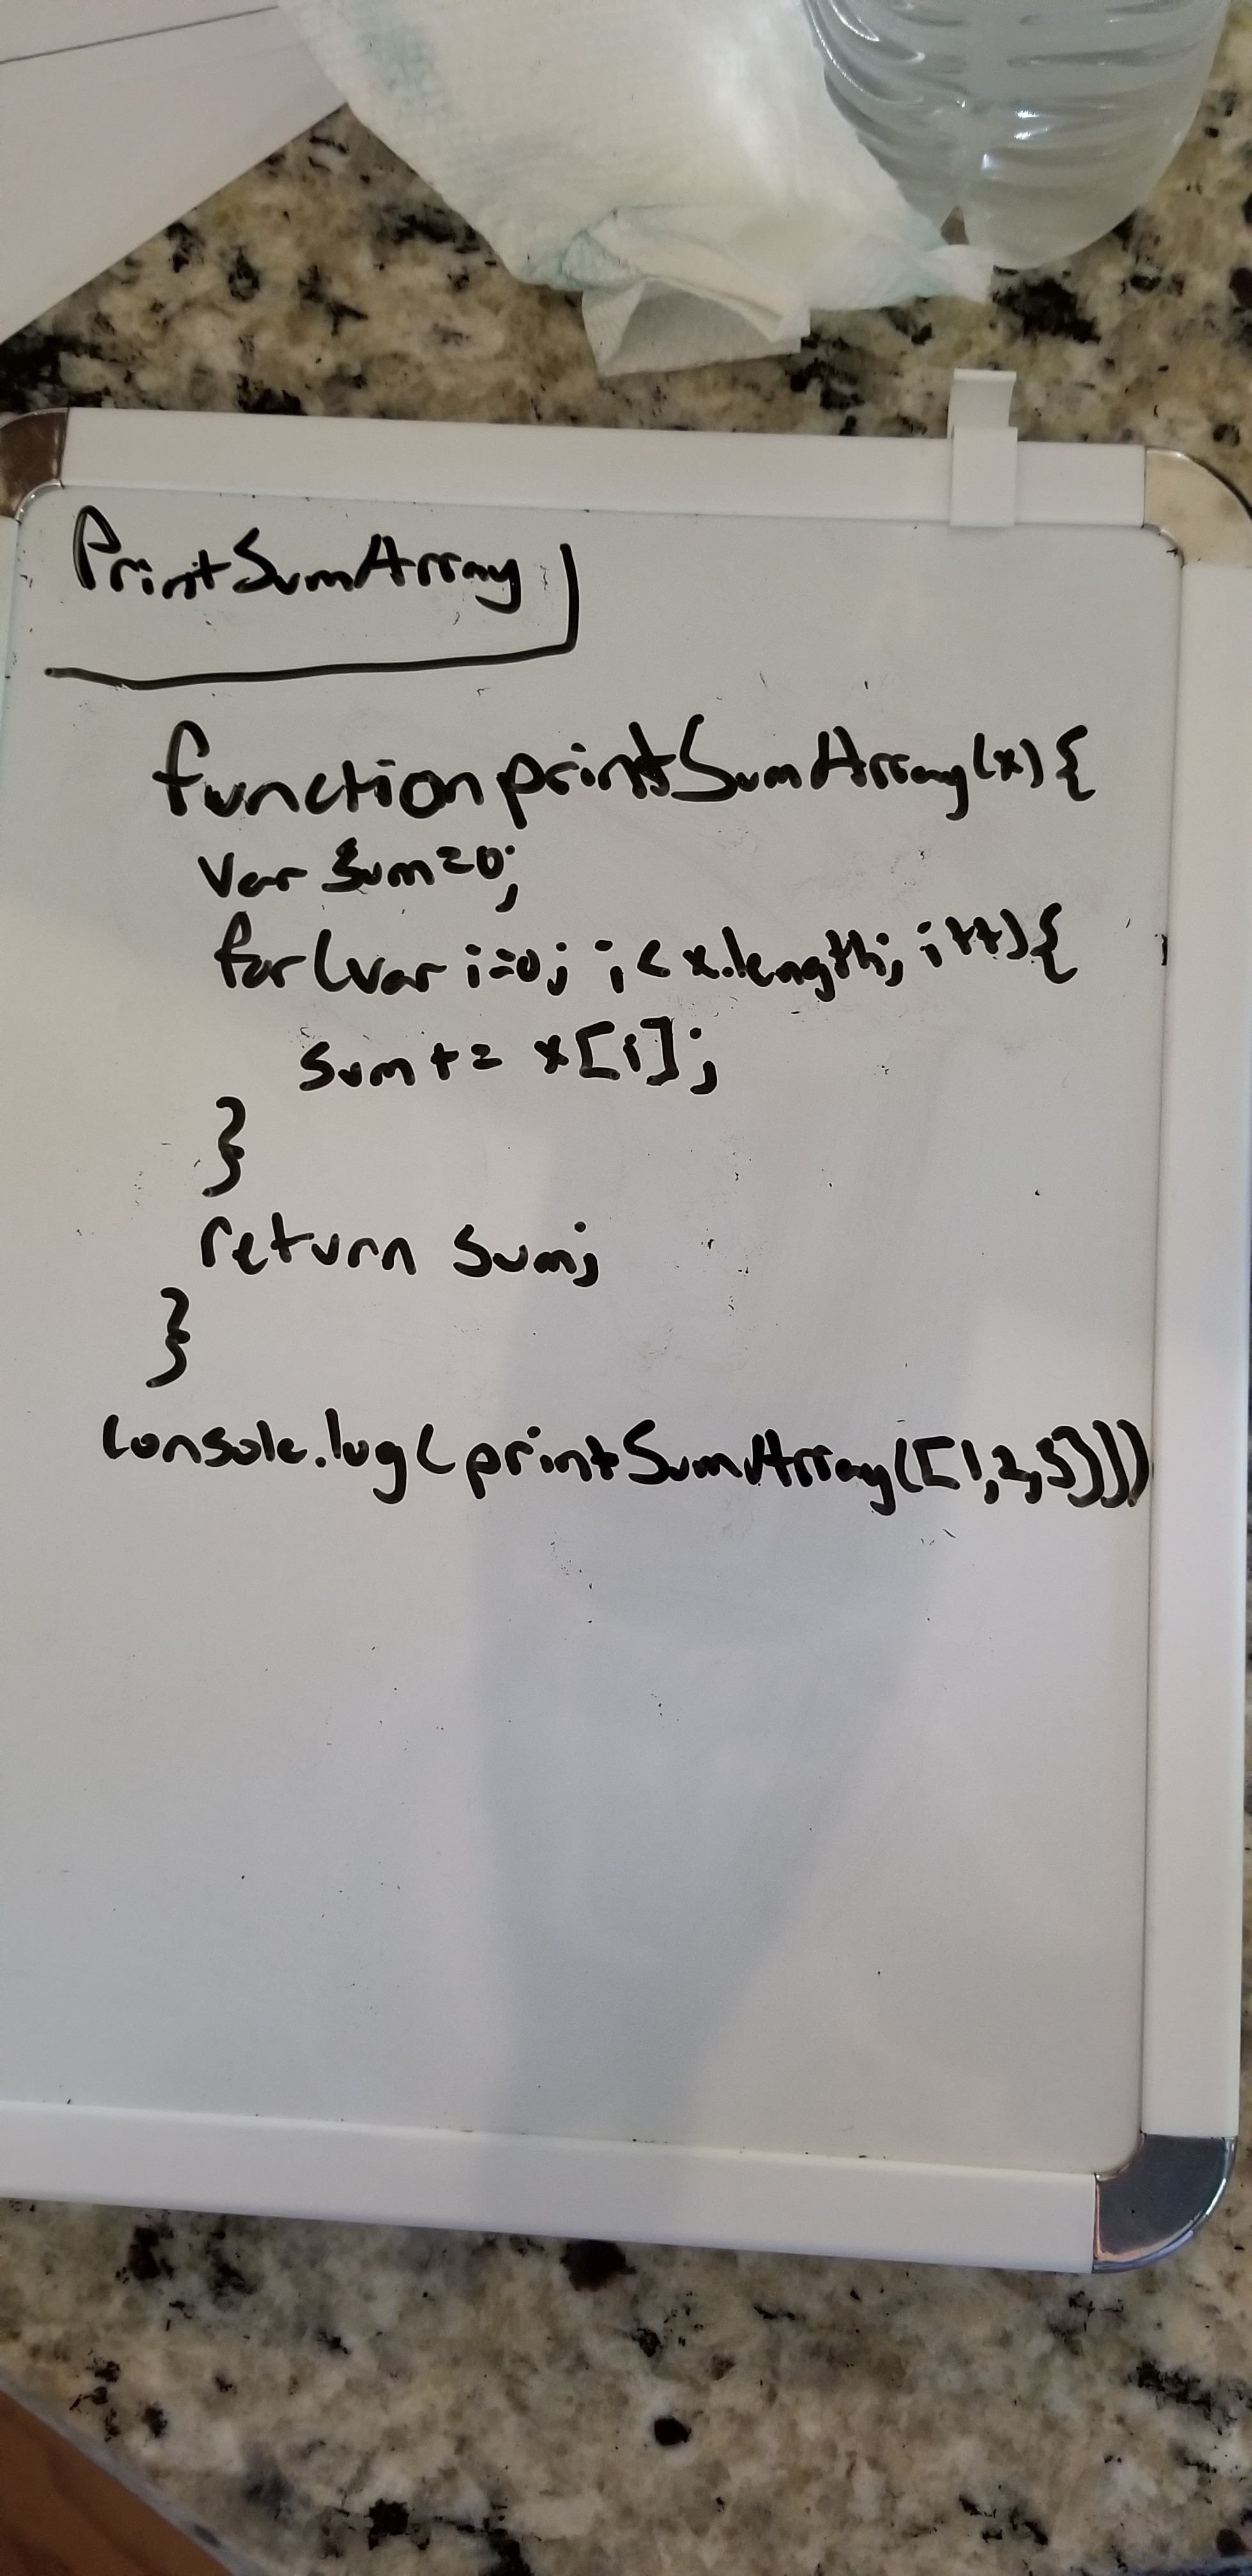 PrintSumArray
function printSumArray(x){
var sum=0;
for(var i=0; i<x.length; i++){
sum += x[i];
}
return sum;
}
console.log(printSumArray([1,2,3]))